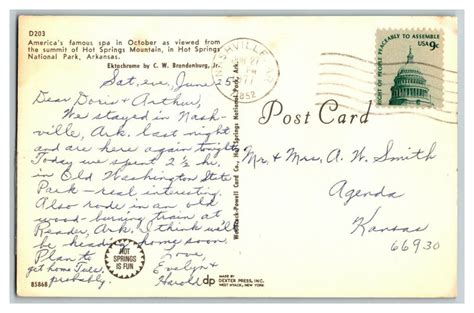 D203
America's famous spa in October as viewed from
the summit of Hot Springs Mountain, in Hot Springs
National Park, Arkansas.
Ektachrome by C. W. Brandenburg, Jr.
Sat. eve, June
Dear Doris & Arthur,
We stayed in Nash-
ville, Ark. last night
and are here again tonight
Today we spent 2½ hr.
in Old Washington State
Park - real interesting.
Also rode in an old
wood-burning train at
Reader, Ark. I think will
be heading home soon
Plan to
get home Tues.
probably.
Love,
Evelyn &
Harold
HOT
SPRINGS
IS FUN
85868
dp
MADE BY
DEXTER PRESS, INC.
WEST NYACK, NEW YORK
Woodcock-Powell Card Co., Hot Springs National Park, Ark.
NASHVILLE
PM
1852
RIGHT OF PEOPLE PEACEABLY TO ASSEMBLE
USA 9c
Post Card
Mr. & Mrs. A. W. Smith
Agenda
Kansas
66930